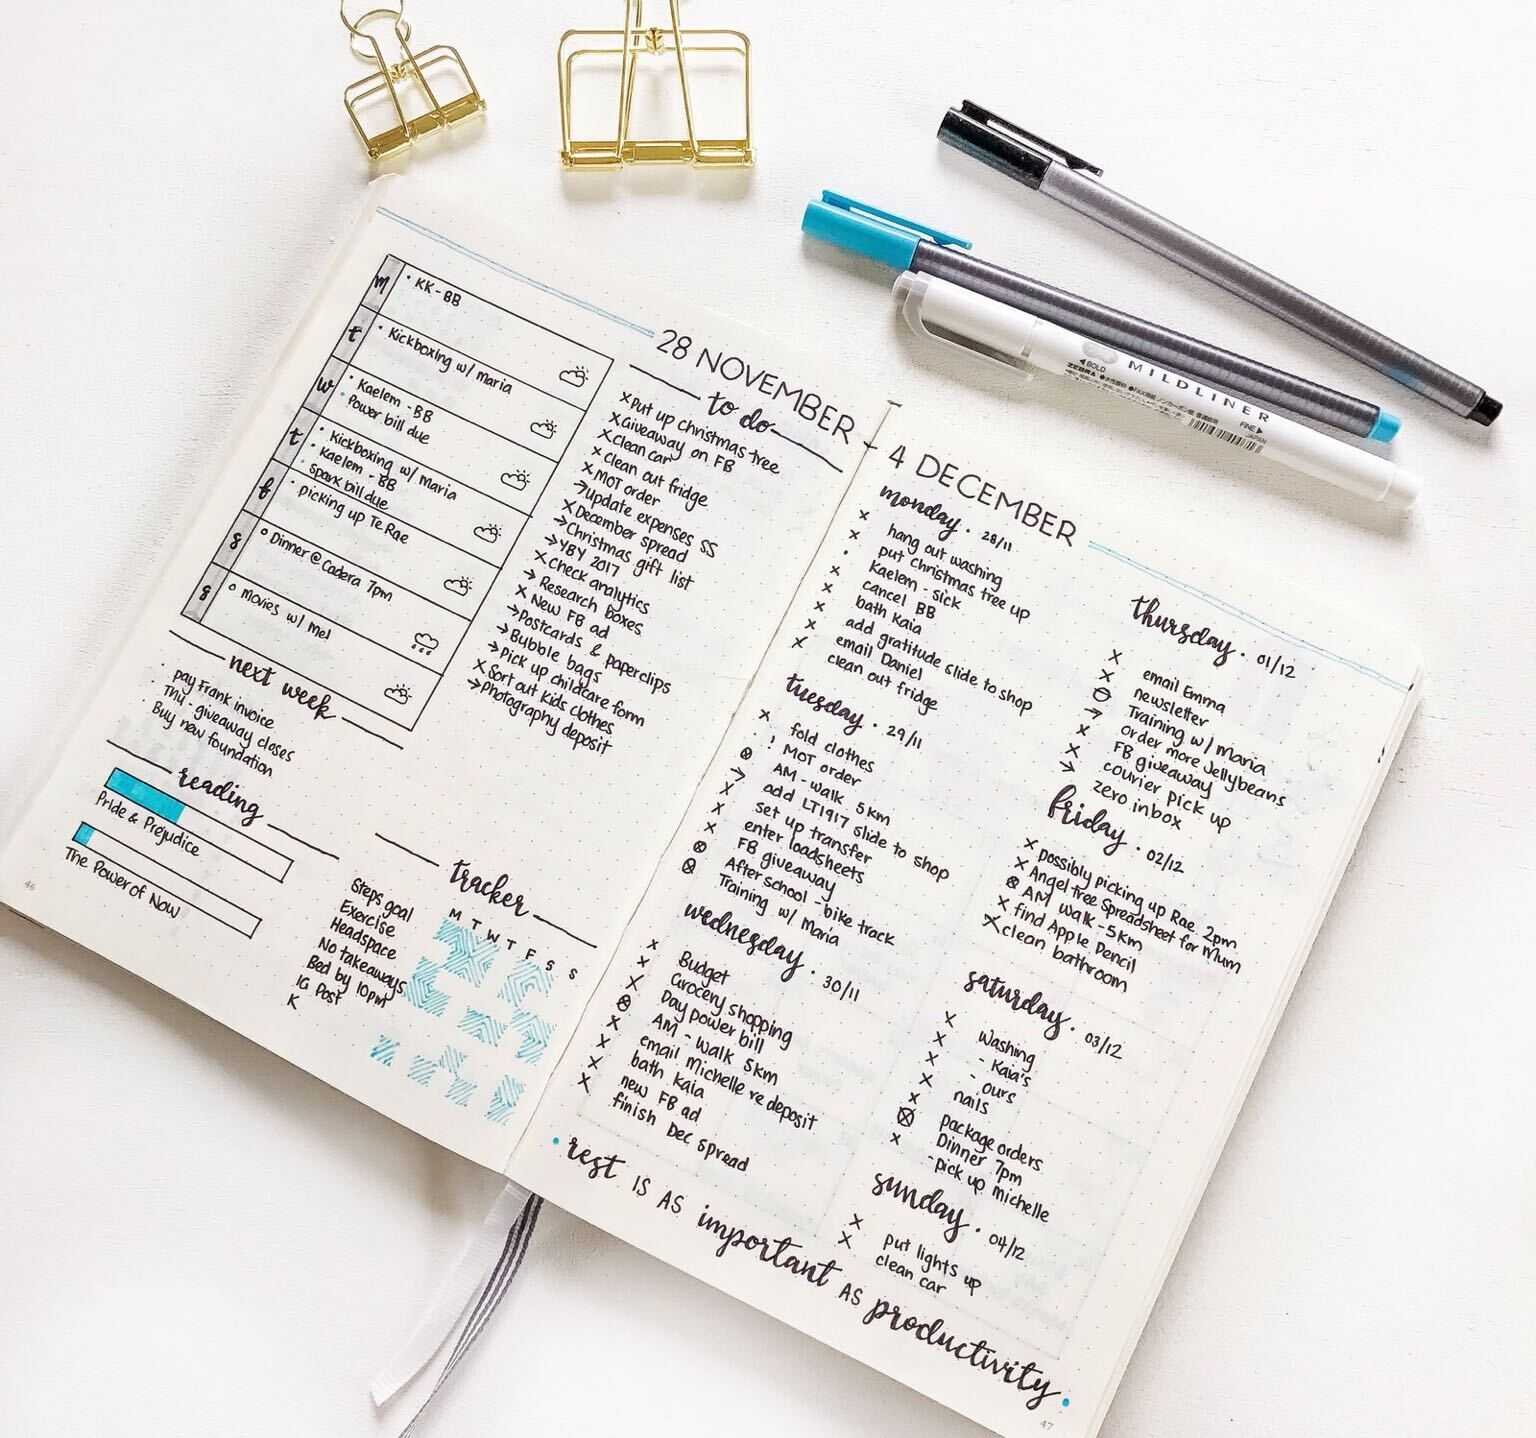 28 NOVEMBER - 4 DECEMBER
m
• KK - BB
t
• Kickboxing w/ maria
w
• Kaelem - BB
• Power bill due
t
• Kickboxing w/ maria
• Kaelem - BB
• Spark bill due
f
• picking up Te Rae
s
o Dinner @ Cadera 7pm
s
o movies w/ mel
to do
x Put up christmas tree
x Giveaway on FB
x clean car
x clean out fridge
x MOT order
→ update expenses SS
x December spread
→ Christmas gift list
→ YBY 2017
x Check analytics
→ Research boxes
x New FB ad
→ Postcards & paperclips
→ Bubble bags
→ Pick up childcare form
x Sort out kids clothes
→ Photography deposit
next week
• pay Frank invoice
• Thu - giveaway closes
• Buy new foundation
reading
Pride & Prejudice
The Power of Now
tracker
M T W T F S S
Steps goal
Exercise
Headspace
No takeaways
Bed by 10pm
IG Post
K
46
monday • 28/11
x hang out washing
x put christmas tree up
• Kaelem - sick
x cancel BB
x bath Kaia
x add gratitude slide to shop
x email Daniel
x clean out fridge
tuesday • 29/11
x fold clothes
• ! MOT order
⊗ AM - walk 5km
→ add LT1917 slide to shop
x set up transfer
x enter loadsheets
x FB giveaway
⊗ After school - bike track
⊗ Training w/ Maria
wednesday • 30/11
x Budget
x Grocery shopping
x Day power bill
⊗ AM - walk 5km
x email Michelle re deposit
x bath kaia
x new FB ad
x finish Dec spread
thursday • 01/12
x email Emma
x newsletter
⊖ Training w/ Maria
→ order more Jellybeans
x FB giveaway
x courier pick up
→ zero inbox
friday • 02/12
x possibly picking up Rae 2pm
x Angel tree Spreadsheet for Mum
⊗ AM walk - 5km
x find Apple Pencil
x clean bathroom
saturday • 03/12
x Washing
x - Kaia's
x - ours
x nails
x package orders
⊗ Dinner 7pm
x - pick up michelle
sunday • 04/12
x put lights up
x clean car
• rest IS AS important AS productivity •
47
BOLD
ZEBRA
MILDLINER
FINE
JAPAN